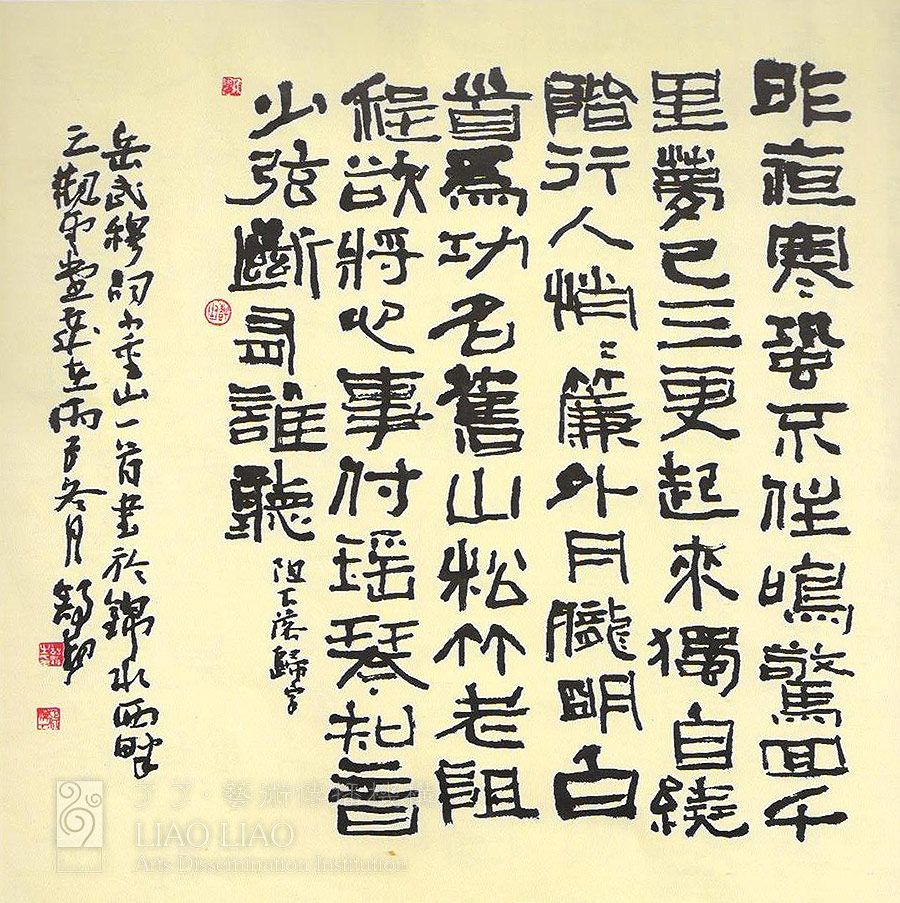 昨夜寒蛩不住鳴驚回千
里夢已三更起來獨自繞
階行人悄〻簾外月朧明白
首為功名舊山松竹老阻
程欲將心事付瑤琴知音
少弦斷有誰聽
阻下落歸字
岳武穆詞小重山一首書於錦水西畔
之觀雲堂歲在丙子冬月舒炯
了了·藝術傳播機構
LIAO LIAO
Arts Dissemination Institution